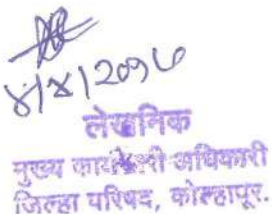 लेखनिक
मुख्य कार्यकारी अधिकारी
जिल्हा परिषद, कोल्हापूर.